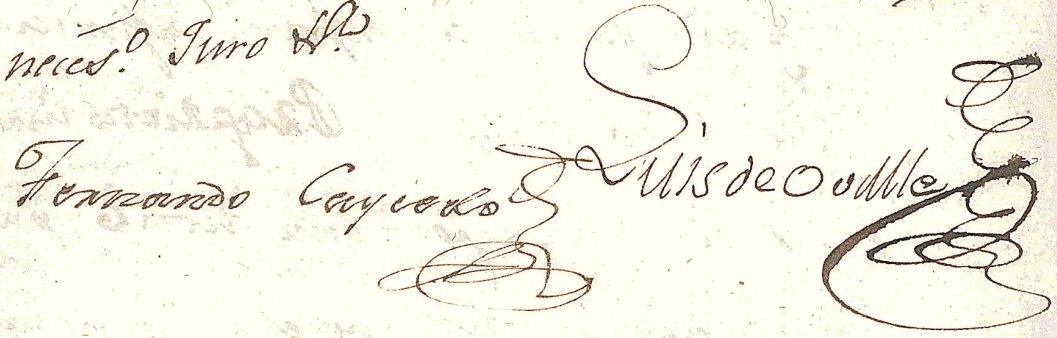 neces.º Juro &.ª
Fernando Caycedo Luis de Ovalle